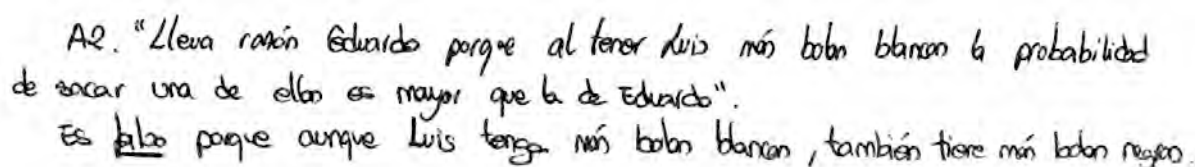 A2. "Lleva razón Eduardo porque al tener Luis más bolas blancas la probabilidad
de sacar una de ellas es mayor que la de Eduardo".
Es falso porque aunque Luis tenga más bolas blancas, también tiene más bolas negras